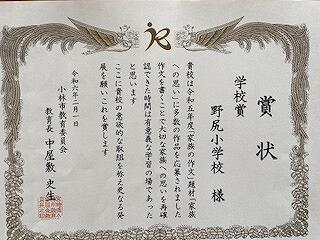 賞状
学校賞
野尻小学校 様
貴校は令和五年度「家族の作文」題材「家族
への思い」に多数の作品を応募されました
作文を書くことで大切な家族への思いを再確
認できた時間は有意義な学習の場であった
と思います
ここに貴校の意欲的な取組を称え更なる発
展を願いこれを賞します
令和六年二月一日
小林市教育委員会
教育長 中屋敷 史生